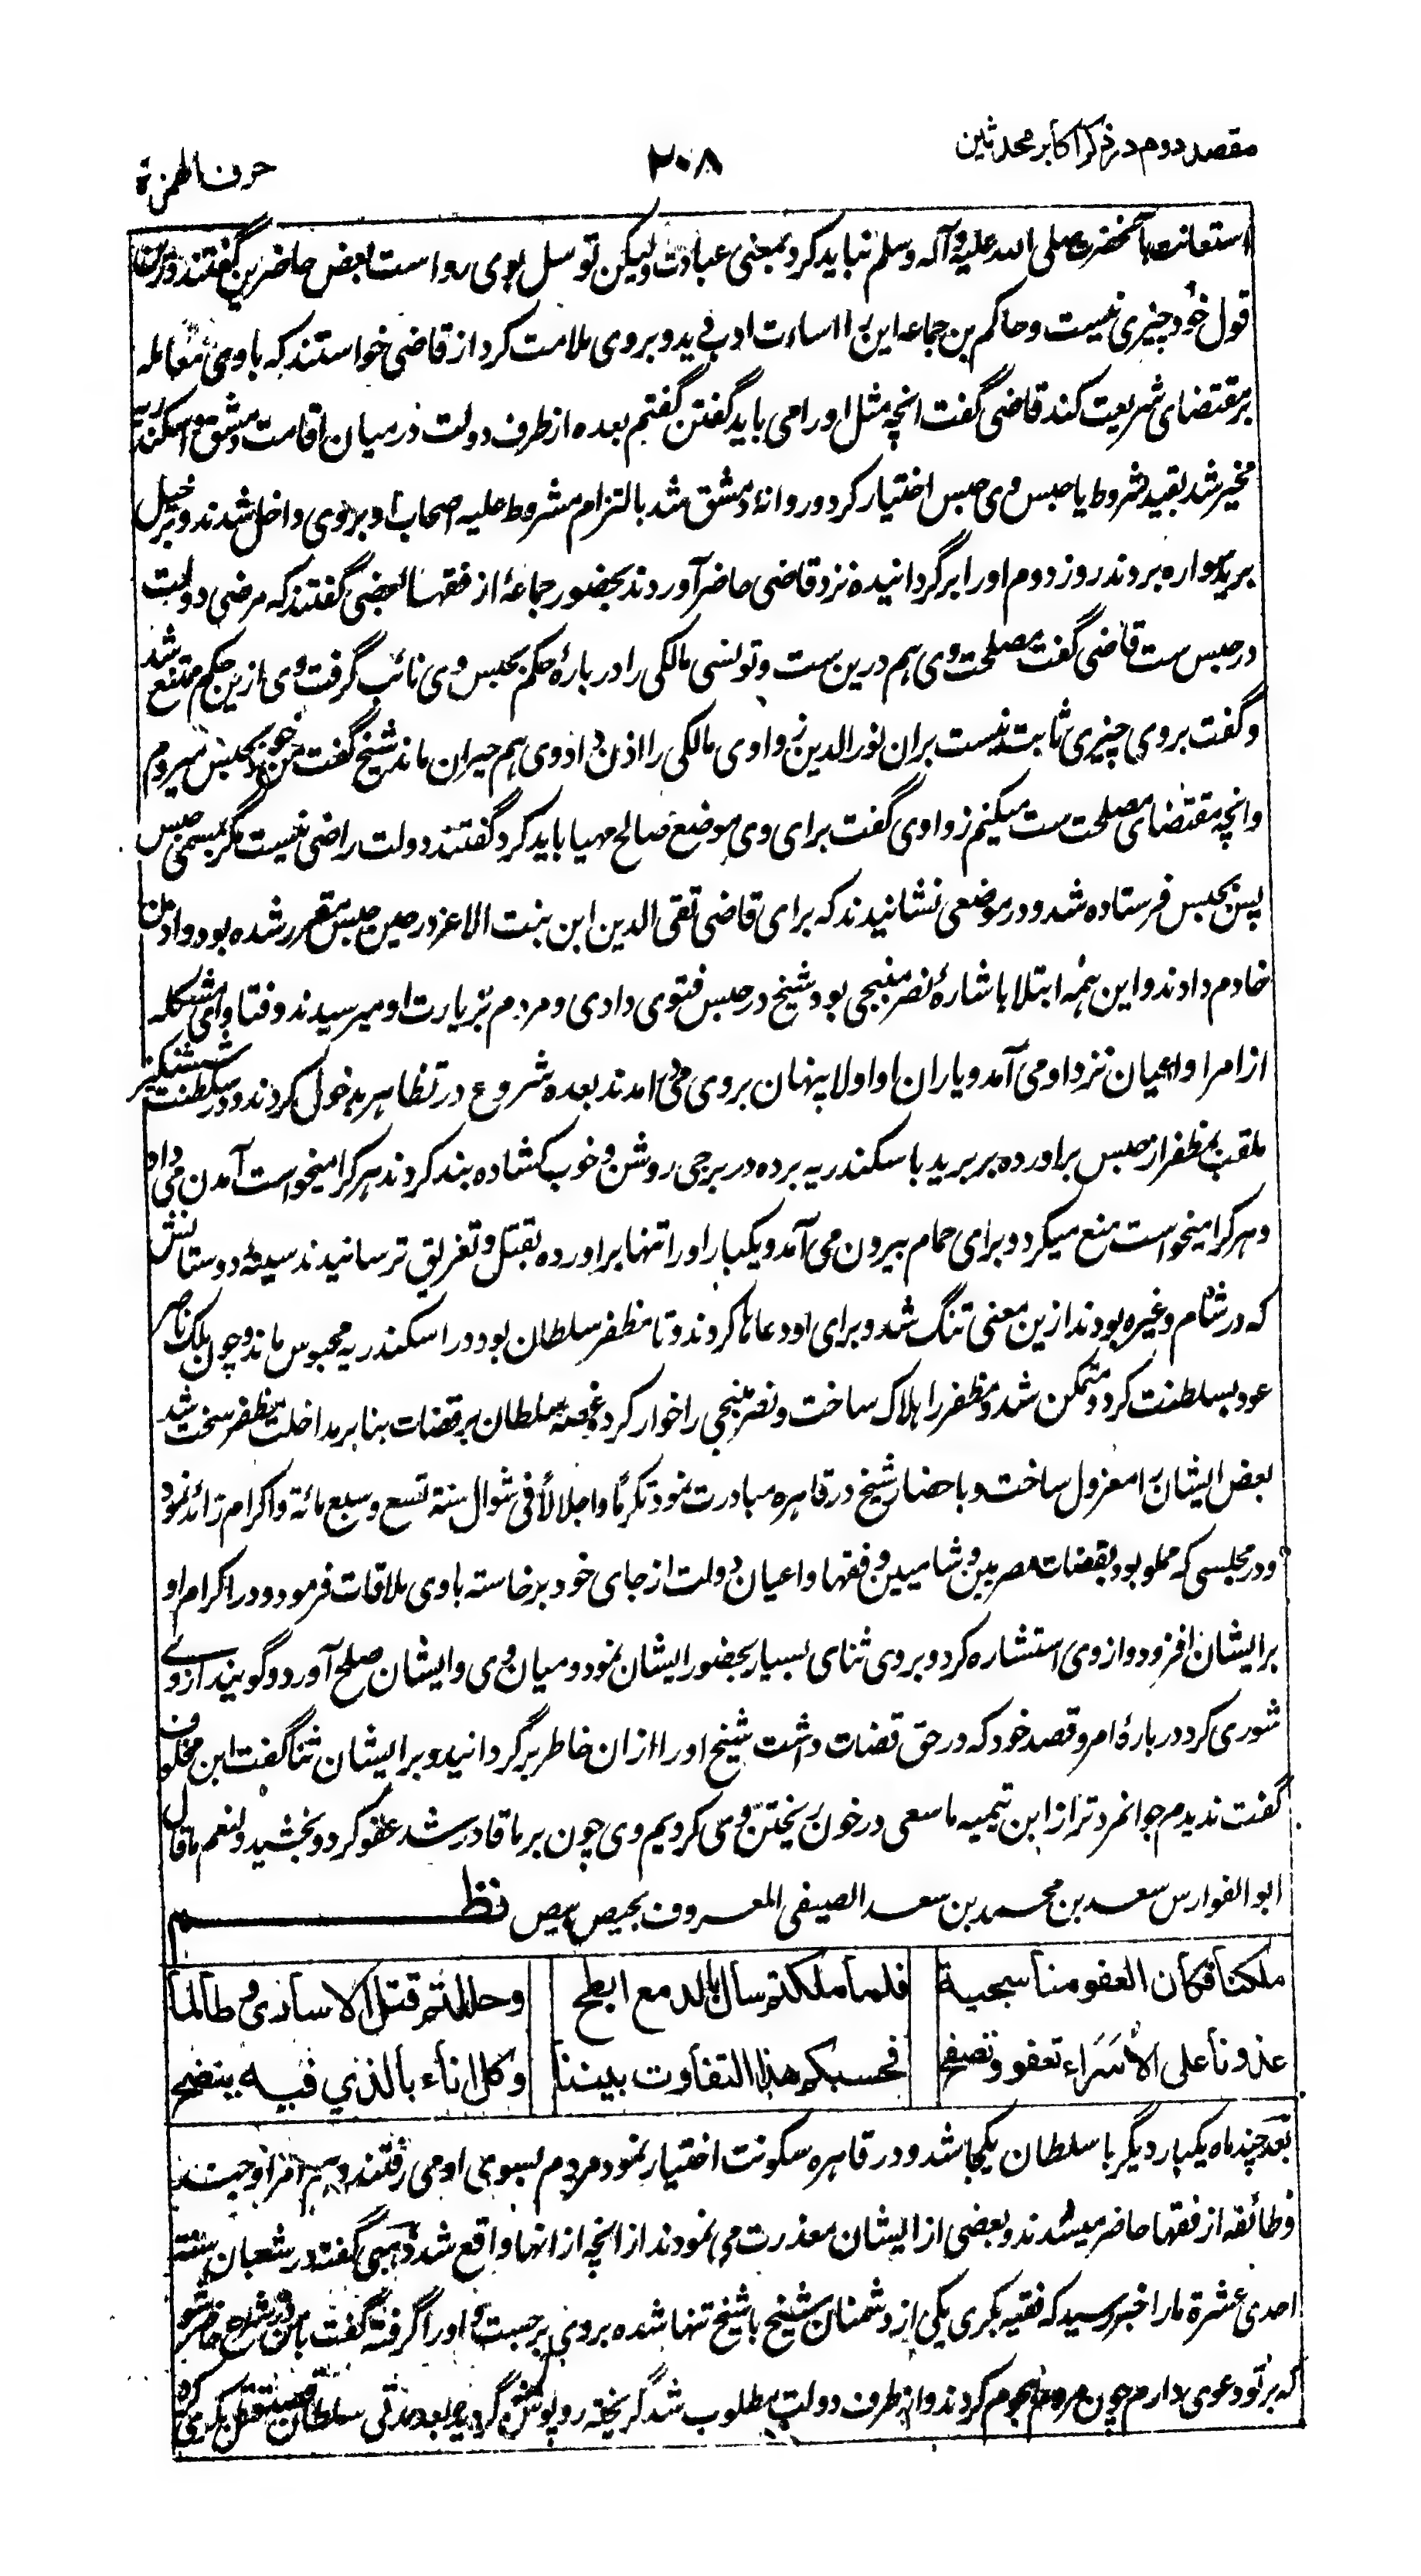 مقصد دوم در ذکر اکابر محدثین
۲۰۸
حرف الهمزة
استعانت بآنحضرت صلی الله علیه وآله وسلم نباید کرد بمعنی عبادت ولیکن توسل بوی رواست بعض حاضرین گفتند درین
قول خود چیزی نیست وحاکم بن جماعه این را اساءت ادب دید وبروی ملامت کرد از قاضی خواستند که باوی معامله
بر مقتضای شریعت کند قاضی گفت انچه مثل او را می باید گفتن گفتم بعده از طرف دولت در میان اقامت دمشق واسکندریه
مخیر شد بقید شروط یا حبس وی حبس اختیار کرد وروانۀ دمشق شد بالتزام مشروط علیه اصحاب او بروی داخل شدند وبر خیل
برید سواره بردند روز دوم او را برگردانیده نزد قاضی حاضر آوردند بحضور جماعۀ از فقها بعضی گفتند که مرضی دولت
در حبس ست قاضی گفت مصلحت وی هم درین ست وتونسی مالکی را دربارۀ حکم بحبس وی نائب گرفت وی ازین حکم ممتنع شد
وگفت بروی چیزی ثابت نیست بران نور الدین زواوی مالکی را اذن داد وی هم حیران ماند شیخ گفت من خود بحبس میروم
وانچه مقتضای مصلحت ست میکنم زواوی گفت برای وی موضع صالح مهیا باید کرد گفتند دولت راضی نیست مگر بمسمی حبس
پس بحبس فرستاده شد ودر موضعی نشانیدند که برای قاضی تقی الدین ابن بنت الاعز در حین حبس مقرر شده بود واذن
خادم دادند واین همه ابتلا باشارۀ نصر منبجی بود شیخ در حبس فتوی دادی ومردم بزیارت او میرسیدند وفتاوای مشکله
از امرا واعیان نزد او می آمد ویاران او اولا پنهان بروی می درامدند بعده شروع در تظاهر بدخول کردند ودر سلطنت ششنکیر
ملقب بمظفر از حبس براورده بر برید باسکندریه برده در برجی روشن وخوب کشاده بند کردند هر کرا میخواست آمدن می داد
وهر کرا میخواست منع میکرد وبرای حمام بیرون می آمد ویکبار او را تنها براورده بقتل وتغریق ترسانیدند سینۀ دوستانش
که در شام وغیره بودند ازین معنی تنگ شد وبرای او دعاها کردند وتا مظفر سلطان بود در اسکندریه محبوس ماند وچون ملک ناصر
عود بسلطنت کرد ومتمکن شد ومظفر را هلاک ساخت ونصر منبجی را خوار کرد وغصۀ سلطان بر قضات بنا بر مداخلت مظفر سخت شد
بعض ایشان را معزول ساخت وباحضار شیخ در قاهره مبادرت نمود تکرما واجلالا فی شوال سنة تسع وسبع مائة واکرام زائد نمود
ودر مجلسی که مملو بود بقضات مصریین وشامیین وفقها واعیان دولت از جای خود برخاسته باوی ملاقات فرمود ودر اکرام او
بر ایشان افزود واز وی استشاره کرد وبروی ثنای بسیار بحضور ایشان نمود ومیان وی وایشان صلح آورد وگویند از وے
شوری کرد دربارۀ امر وقصد خود که در حق قضات داشت شیخ او را ازان خاطر برگردانید وبر ایشان ثنا گفت ابن مخلوف
گفت ندیدم جوانمردتر از ابن تیمیه ما سعی در خون ریختن وی کردیم وی چون بر ما قادر شد عفو کرد وبخشید ولنعم ما قال
ابو الفوارس سعد بن محمد بن سعد الصیفی المعروف بحیص بیص نظم
ملکنا فکان العفو منا سجیة فلما ملکتم سال بالدمع ابطح وحللتم قتل الاساری وطالما
غدونا علی الأسراء نعفو ونصفح فحسبکم هذا التفاوت بیننا وکل اناء بالذی فیه ینضح
بعد چند ماه یکبار دیگر با سلطان یکجا شد ودر قاهره سکونت اختیار نمود مردم بسوی او می رفتند وهم امرا وجند
وطائفه از فقها حاضر میشدند وبعضی از ایشان معذرت می نمودند از انچه از انها واقع شد ذهبی گفته در شعبان سنة
احدی عشرة مارا خبر رسید که فقیه بکری یکی از دشمنان شیخ با شیخ تنها شده بروی برجست واورا گرفته گفت با من در شرع حاضر شو
که بر تو دعوی دارم چون مردم هجوم کردند واز طرف دولت مطلوب شد گریخته روپوش گردید بعد مدتی سلطان قتل بکری کرد